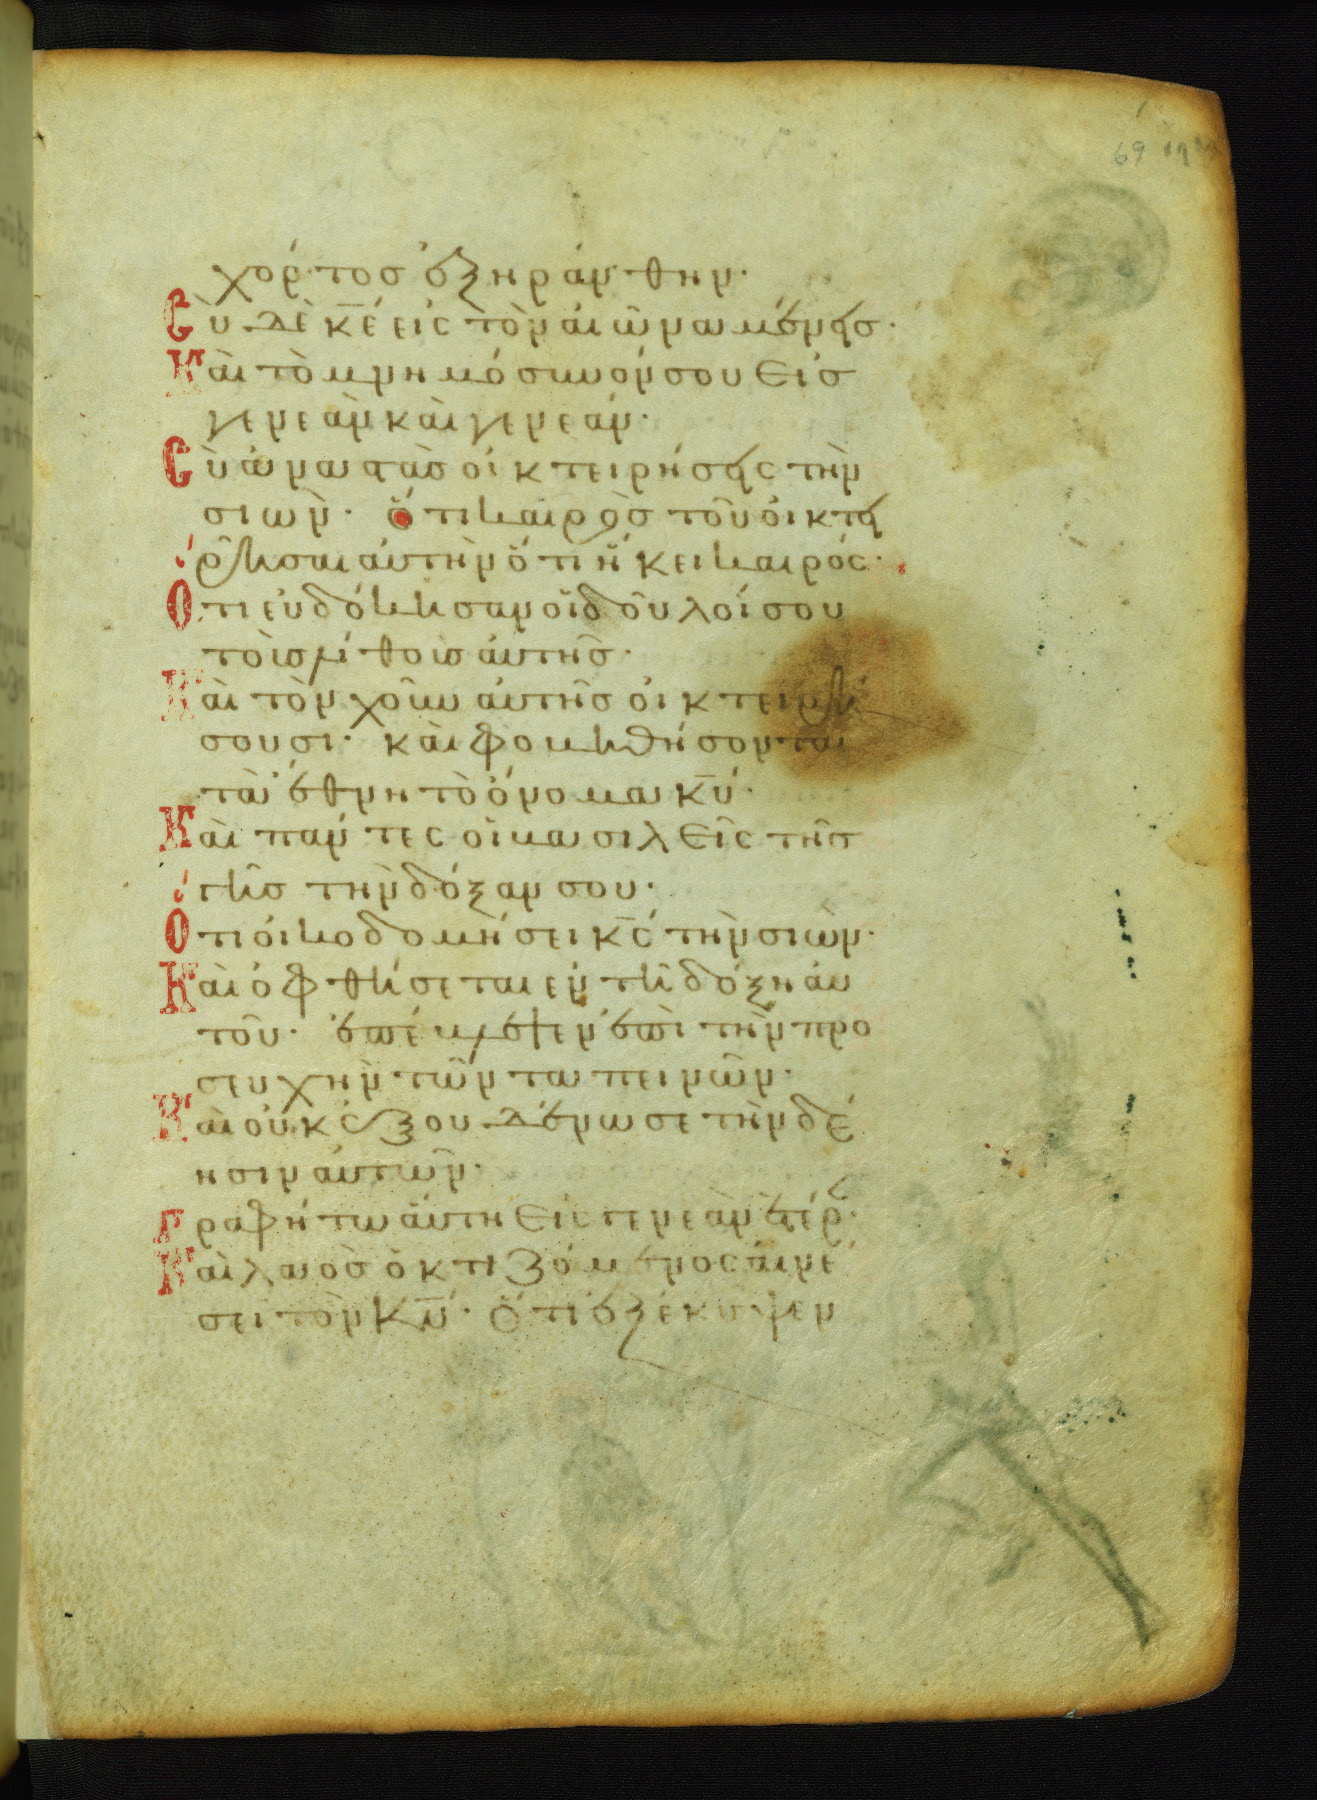 69
χόρτος ἐξηράνθην·
Σὺ δὲ κ̅ε̅ εἰς τὸν αἰῶνα μένεις·
Καὶ τὸ μνημόσυνόν σου εἰς
γενεὰν καὶ γενεάν·
Σὺ ἀναστὰς οἰκτειρήσεις τὴν
σιών· ὅτι καιρὸς τοῦ οἰκτει
ρῆσαι αὐτὴν ὅτι ἥκει καιρός·
Ὅτι εὐδόκησαν οἱ δοῦλοί σου
τοὺς λίθους αὐτῆς·
Καὶ τὸν χοῦν αὐτῆς οἰκτειρή
σουσι· καὶ φοβηθήσονται
τὰ ἔθνη τὸ ὄνομα κ̅υ̅·
Καὶ πάντες οἱ βασιλεῖς τῆς
γῆς τὴν δόξαν σου·
Ὅτι οἰκοδομήσει κ̅ς̅ τὴν σιών·
Καὶ ὀφθήσεται ἐν τῇ δόξῃ αὐ
τοῦ· ἐπέβλεψεν ἐπὶ τὴν προ
σευχὴν τῶν ταπεινῶν·
Καὶ οὐκ ἐξουδένωσε τὴν δέ
ησιν αὐτῶν·
Γραφήτω αὕτη εἰς γενεὰν ἑτέρ·
Καὶ λαὸς ὁ κτιζόμενος αἰνέ
σει τὸν κ̅ν̅· Ὅτι ἐξέκυψεν